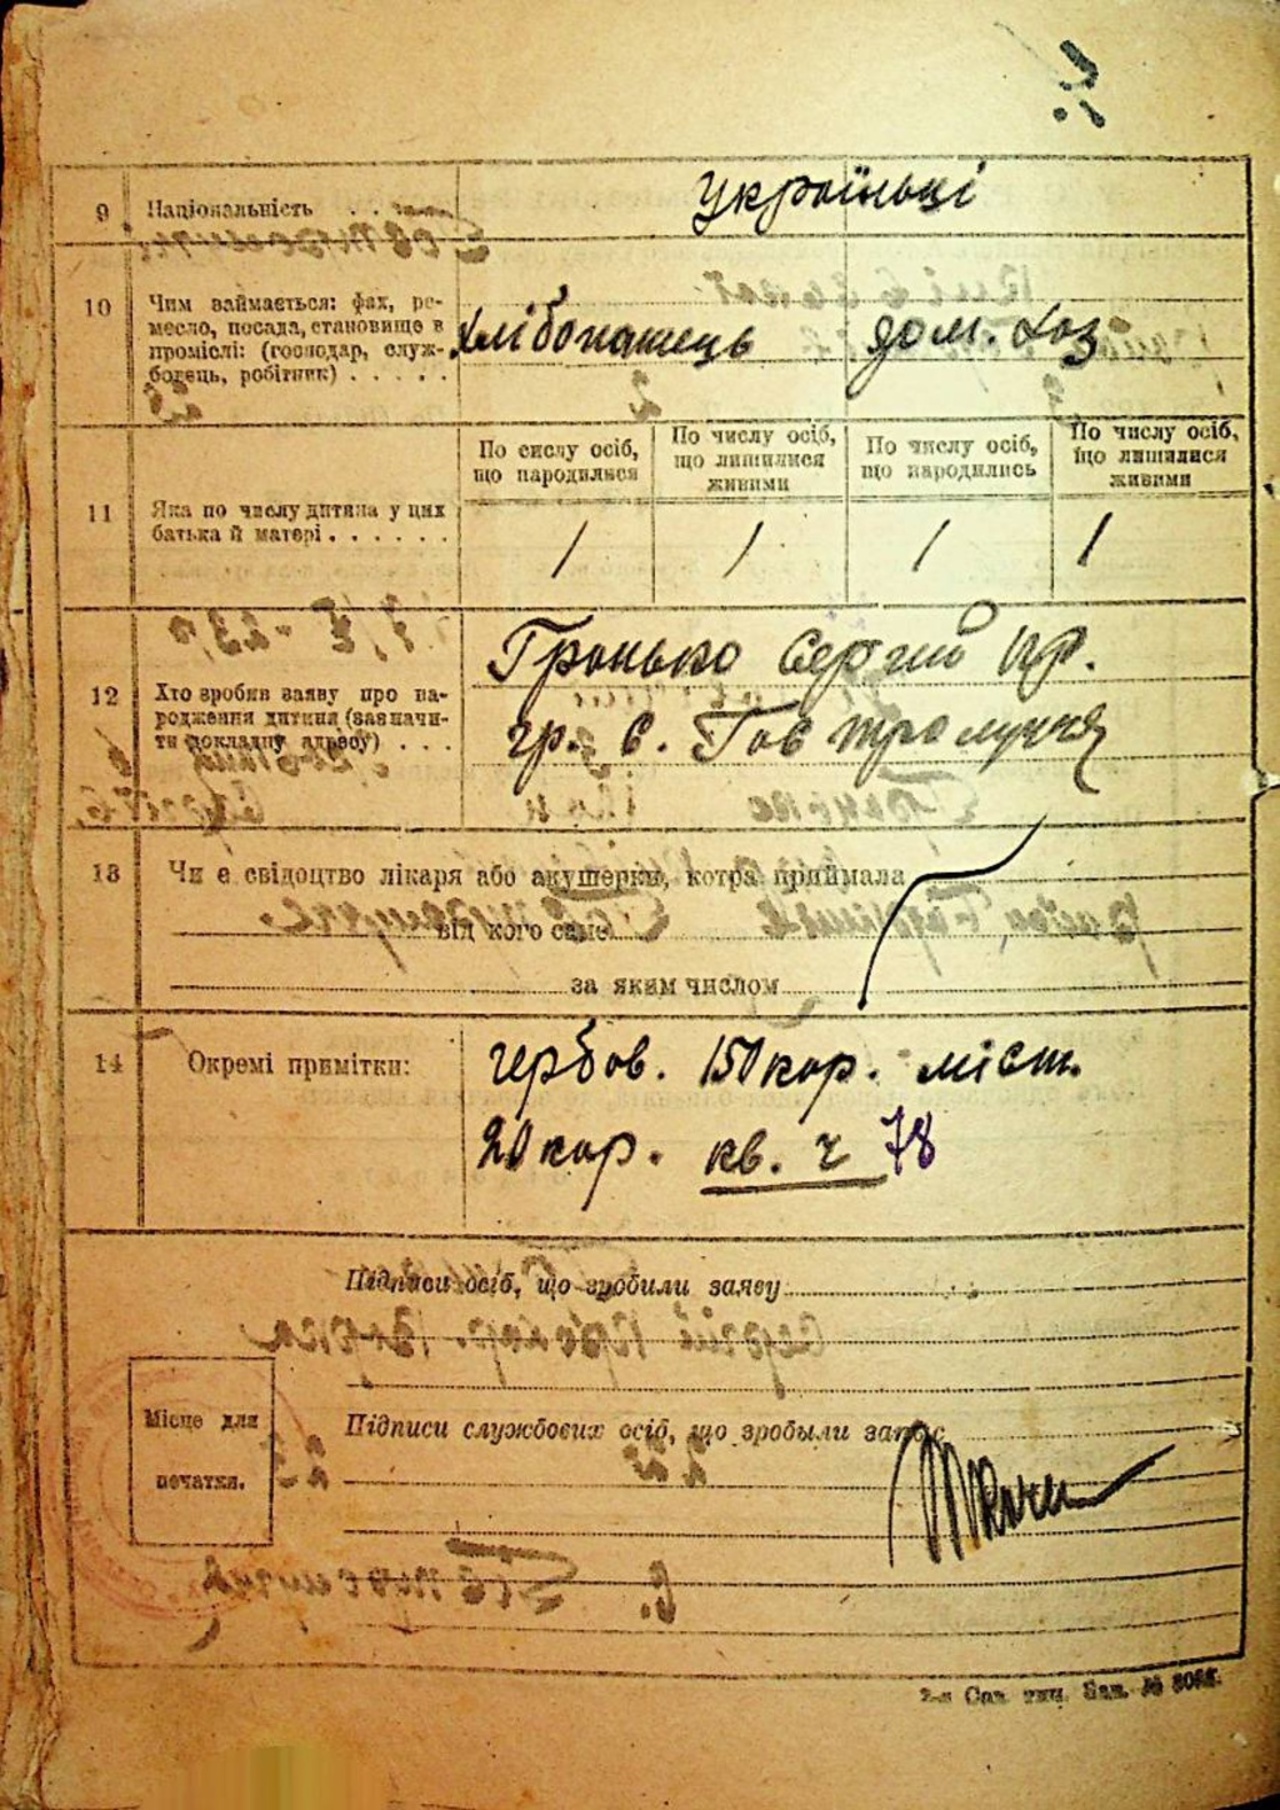 9 Національність . . .
Українці
10 Чим займається: фах, ре-
месло, посада, становище в
проміслі: (господар, служ-
бовець, робітник) . . . . .
хлібопашець дом. хоз
11 Яка по числу дитина у цих
батька й матері . . . . . .
По числу осіб,
що народилися
По числу осіб,
що лишилися
живими
По числу осіб,
що народились
По числу осіб,
що лишилися
живими
1 1 1 1
12 Хто зробив заяву про на-
родження дитини (зазначи-
ти докладну адресу) . . .
Гронько Сергій пр.
гр. с. Говтро
13 Чи є свідоцтво лікаря або акушерки, котра приймала
від кого саме
за яким числом
14 Окремі примітки:
гербов. 150 кор. міст.
20 кор. кв. ч 78
Підписи осіб, що зробили заяву
Місце для
печатки.
Підписи службових осіб, що зробыли запис